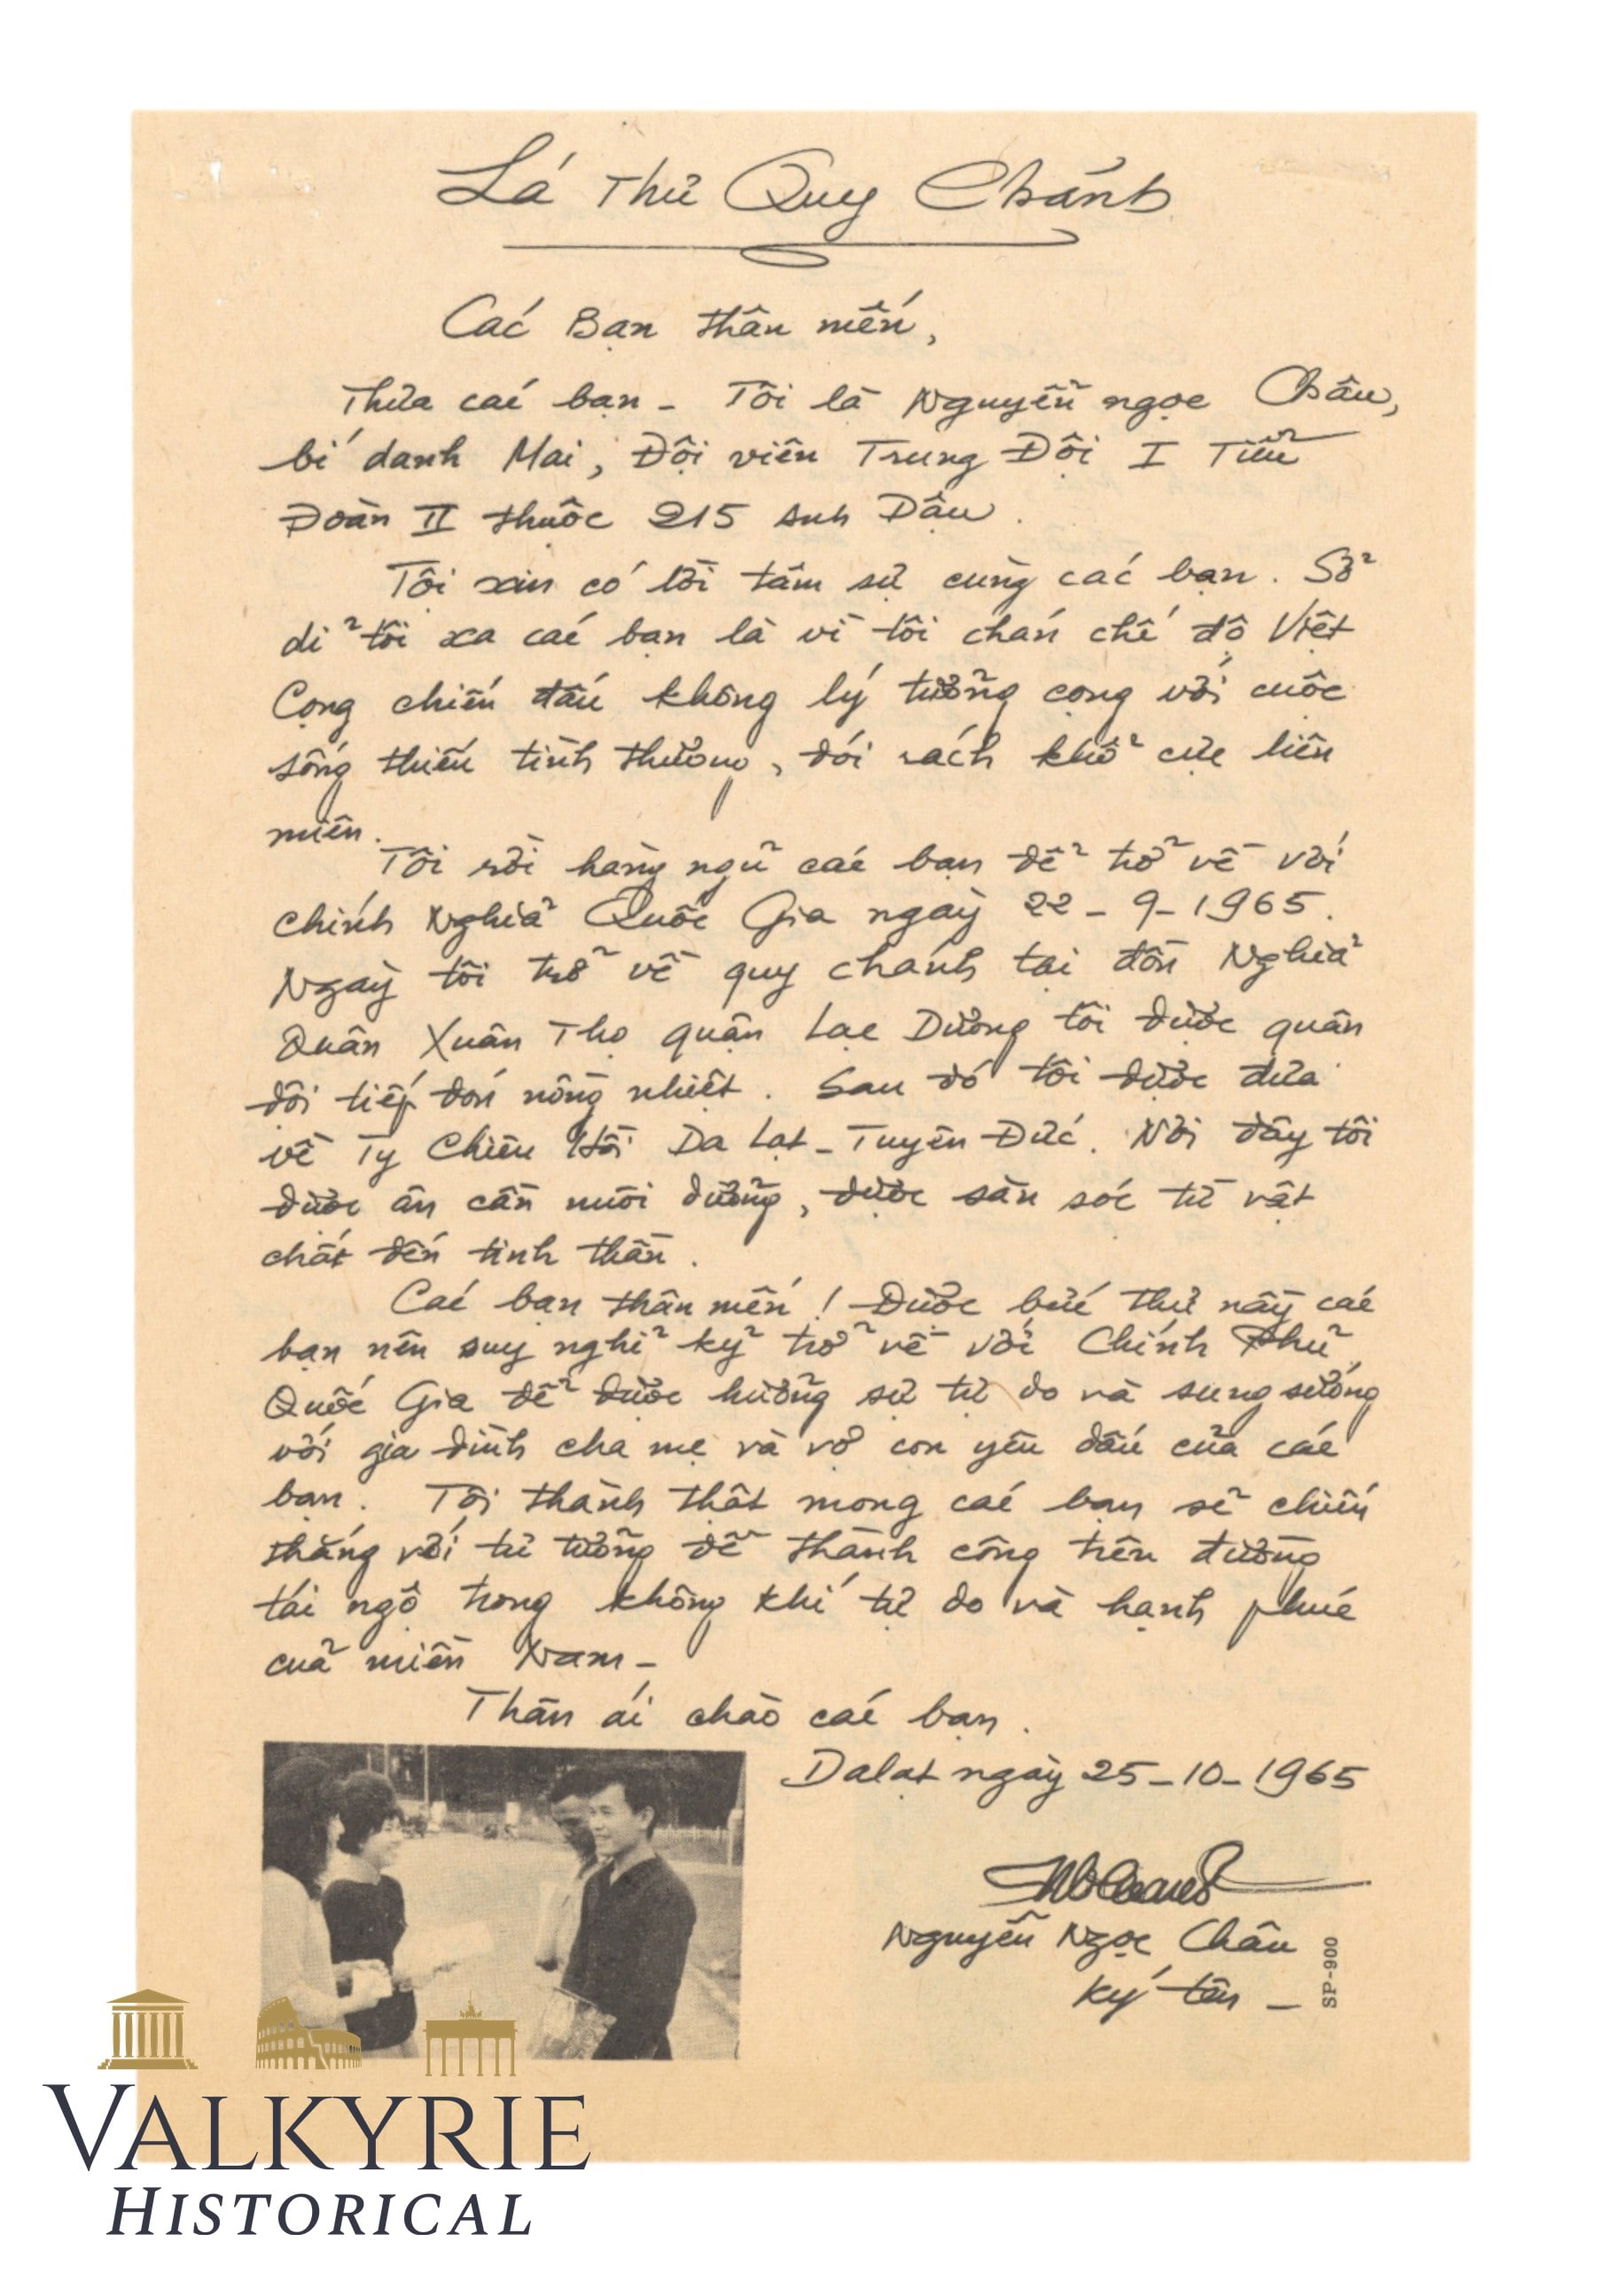 Lá Thư Quy Chánh
Các Bạn thân mến,
Thưa các bạn - Tôi là Nguyễn ngọc Châu,
bí danh Mai, Đội viên Trung Đội I Tiểu
Đoàn II thuộc 215 anh Dâu.
Tôi xin có lời tâm sự cùng các bạn. Sở
dỉ tôi xa các bạn là vì tôi chán chế độ Việt
Cọng chiến đấu không lý tưởng cọng với cuộc
sống thiếu tình thương, đói rách khổ cực liên
miên.
Tôi rời hàng ngũ các bạn để trở về với
chính Nghiả Quốc Gia ngày 22-9-1965.
Ngày tôi trở về quy chánh tại đồn Nghiả
Quân Xuân Thọ quận Lạc Dương tôi được quân
đội tiếp đón nồng nhiệt. Sau đó tôi được đưa
về Ty Chiêu Hồi Da Lạt - Tuyên Đức. Nơi đây tôi
được ân cần nuôi dưỡng, được săn sóc từ vật
chất đến tinh thần.
Các bạn thân mến! Được bức thư nầy các
bạn nên suy nghỉ kỷ trở về với Chính Phủ
Quốc Gia để được hưởng sự tự do và sung sướng
với gia đình cha mẹ và vợ con yêu dấu của các
bạn. Tôi thành thật mong các bạn sẽ chiến
thắng với tư tưởng để thành công trên đường
tái ngộ trong không khí tự do và hạnh phúc
cuả miền Nam -
Thân ái chào các bạn.
Dalạt ngày 25-10-1965
Nguyễn Ngọc Châu
ký tên -
SP-900
VALKYRIE
HISTORICAL